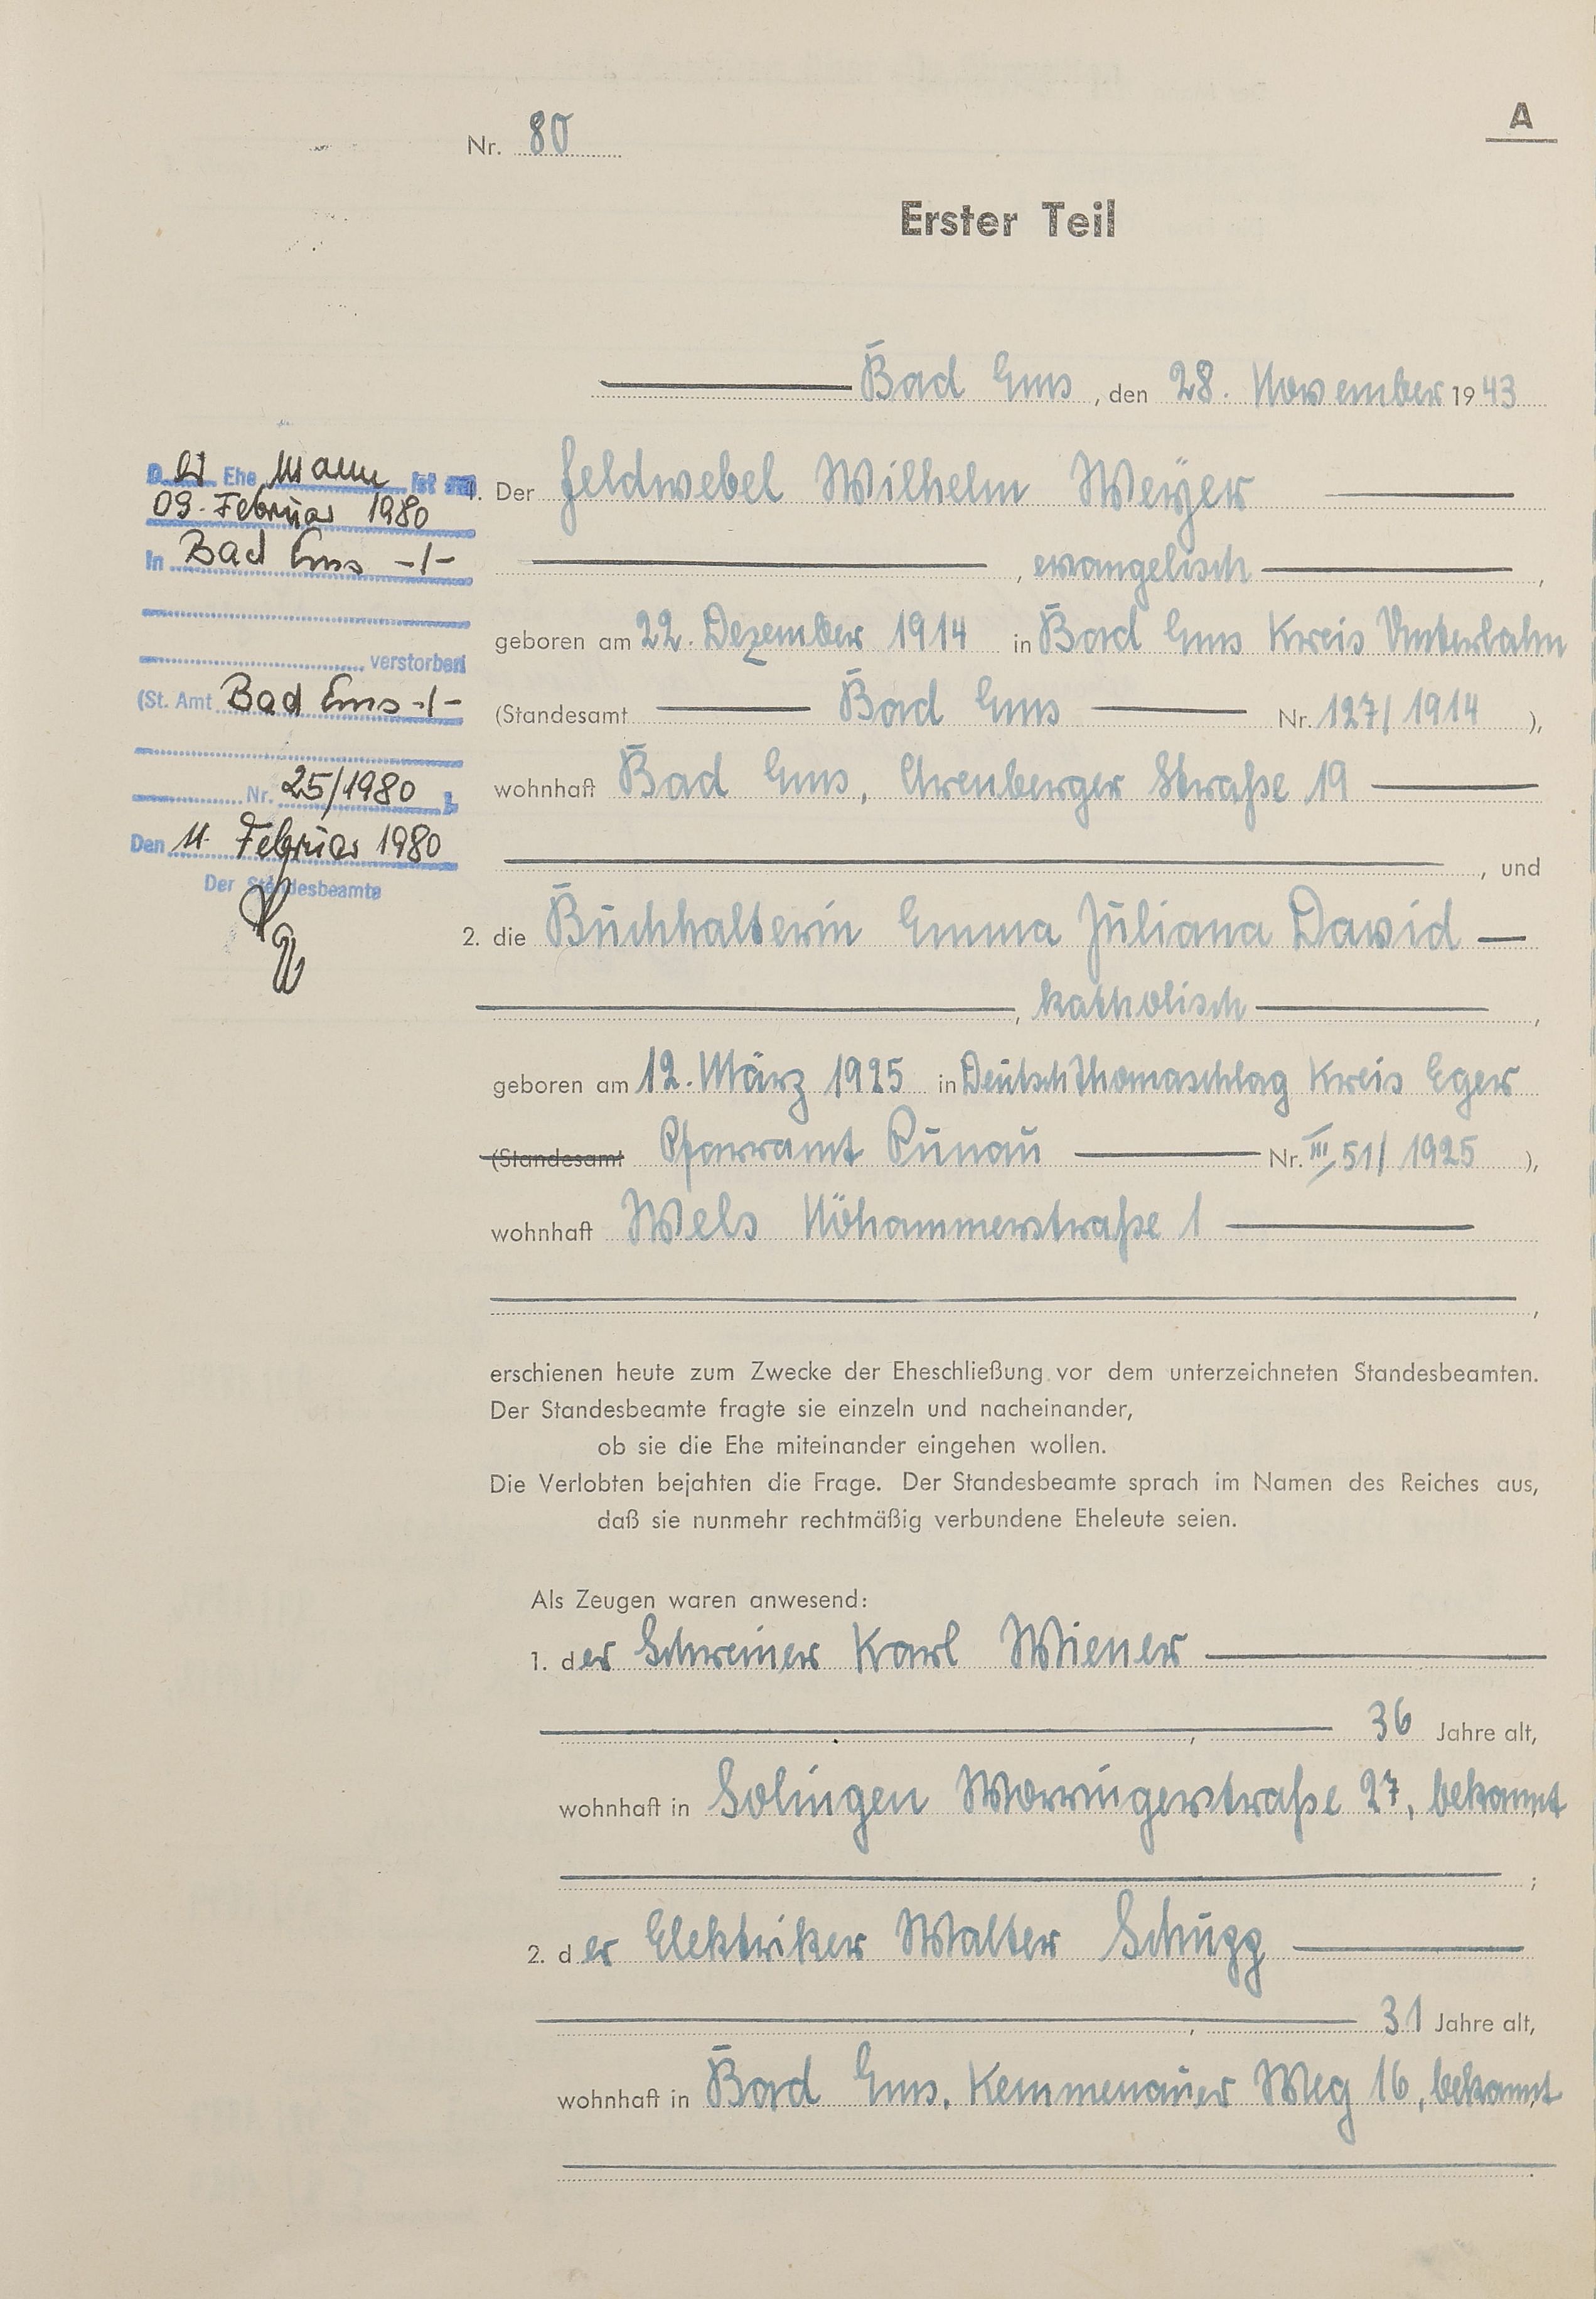 A
Nr. 80
Erster Teil
Bad Ems, den 28. November 1943
Der Ehe Mann ist am
09. Februar 1980
In Bad Ems -/-
verstorben
(St. Amt Bad Ems -/-
Nr. 25/1980 ).
Den 11. Februar 1980
Der Standesbeamte
1. Der Feldwebel Wilhelm Weyer
, evangelisch ,
geboren am 22. Dezember 1914 in Bad Ems Kreis Unterlahn
(Standesamt Bad Ems Nr. 127/1914 ),
wohnhaft Bad Ems, Arenberger Straße 19
, und
2. die Buchhalterin Emma Juliana David
, katholisch ,
geboren am 12. März 1925 in Deutsch Thomaschlag Kreis Eger
(Standesamt Pfarramt Kunau Nr. III/51/1925 ),
wohnhaft Wels Nöhammerstraße 1
,
erschienen heute zum Zwecke der Eheschließung vor dem unterzeichneten Standesbeamten.
Der Standesbeamte fragte sie einzeln und nacheinander,
ob sie die Ehe miteinander eingehen wollen.
Die Verlobten bejahten die Frage. Der Standesbeamte sprach im Namen des Reiches aus,
daß sie nunmehr rechtmäßig verbundene Eheleute seien.
Als Zeugen waren anwesend:
1. der Schreiner Karl Wiener
, 36 Jahre alt,
wohnhaft in Solingen Worringerstraße 27, bekannt
;
2. der Elektriker Walter Schupp
, 31 Jahre alt,
wohnhaft in Bad Ems, Kemmenauer Weg 16, bekannt
.